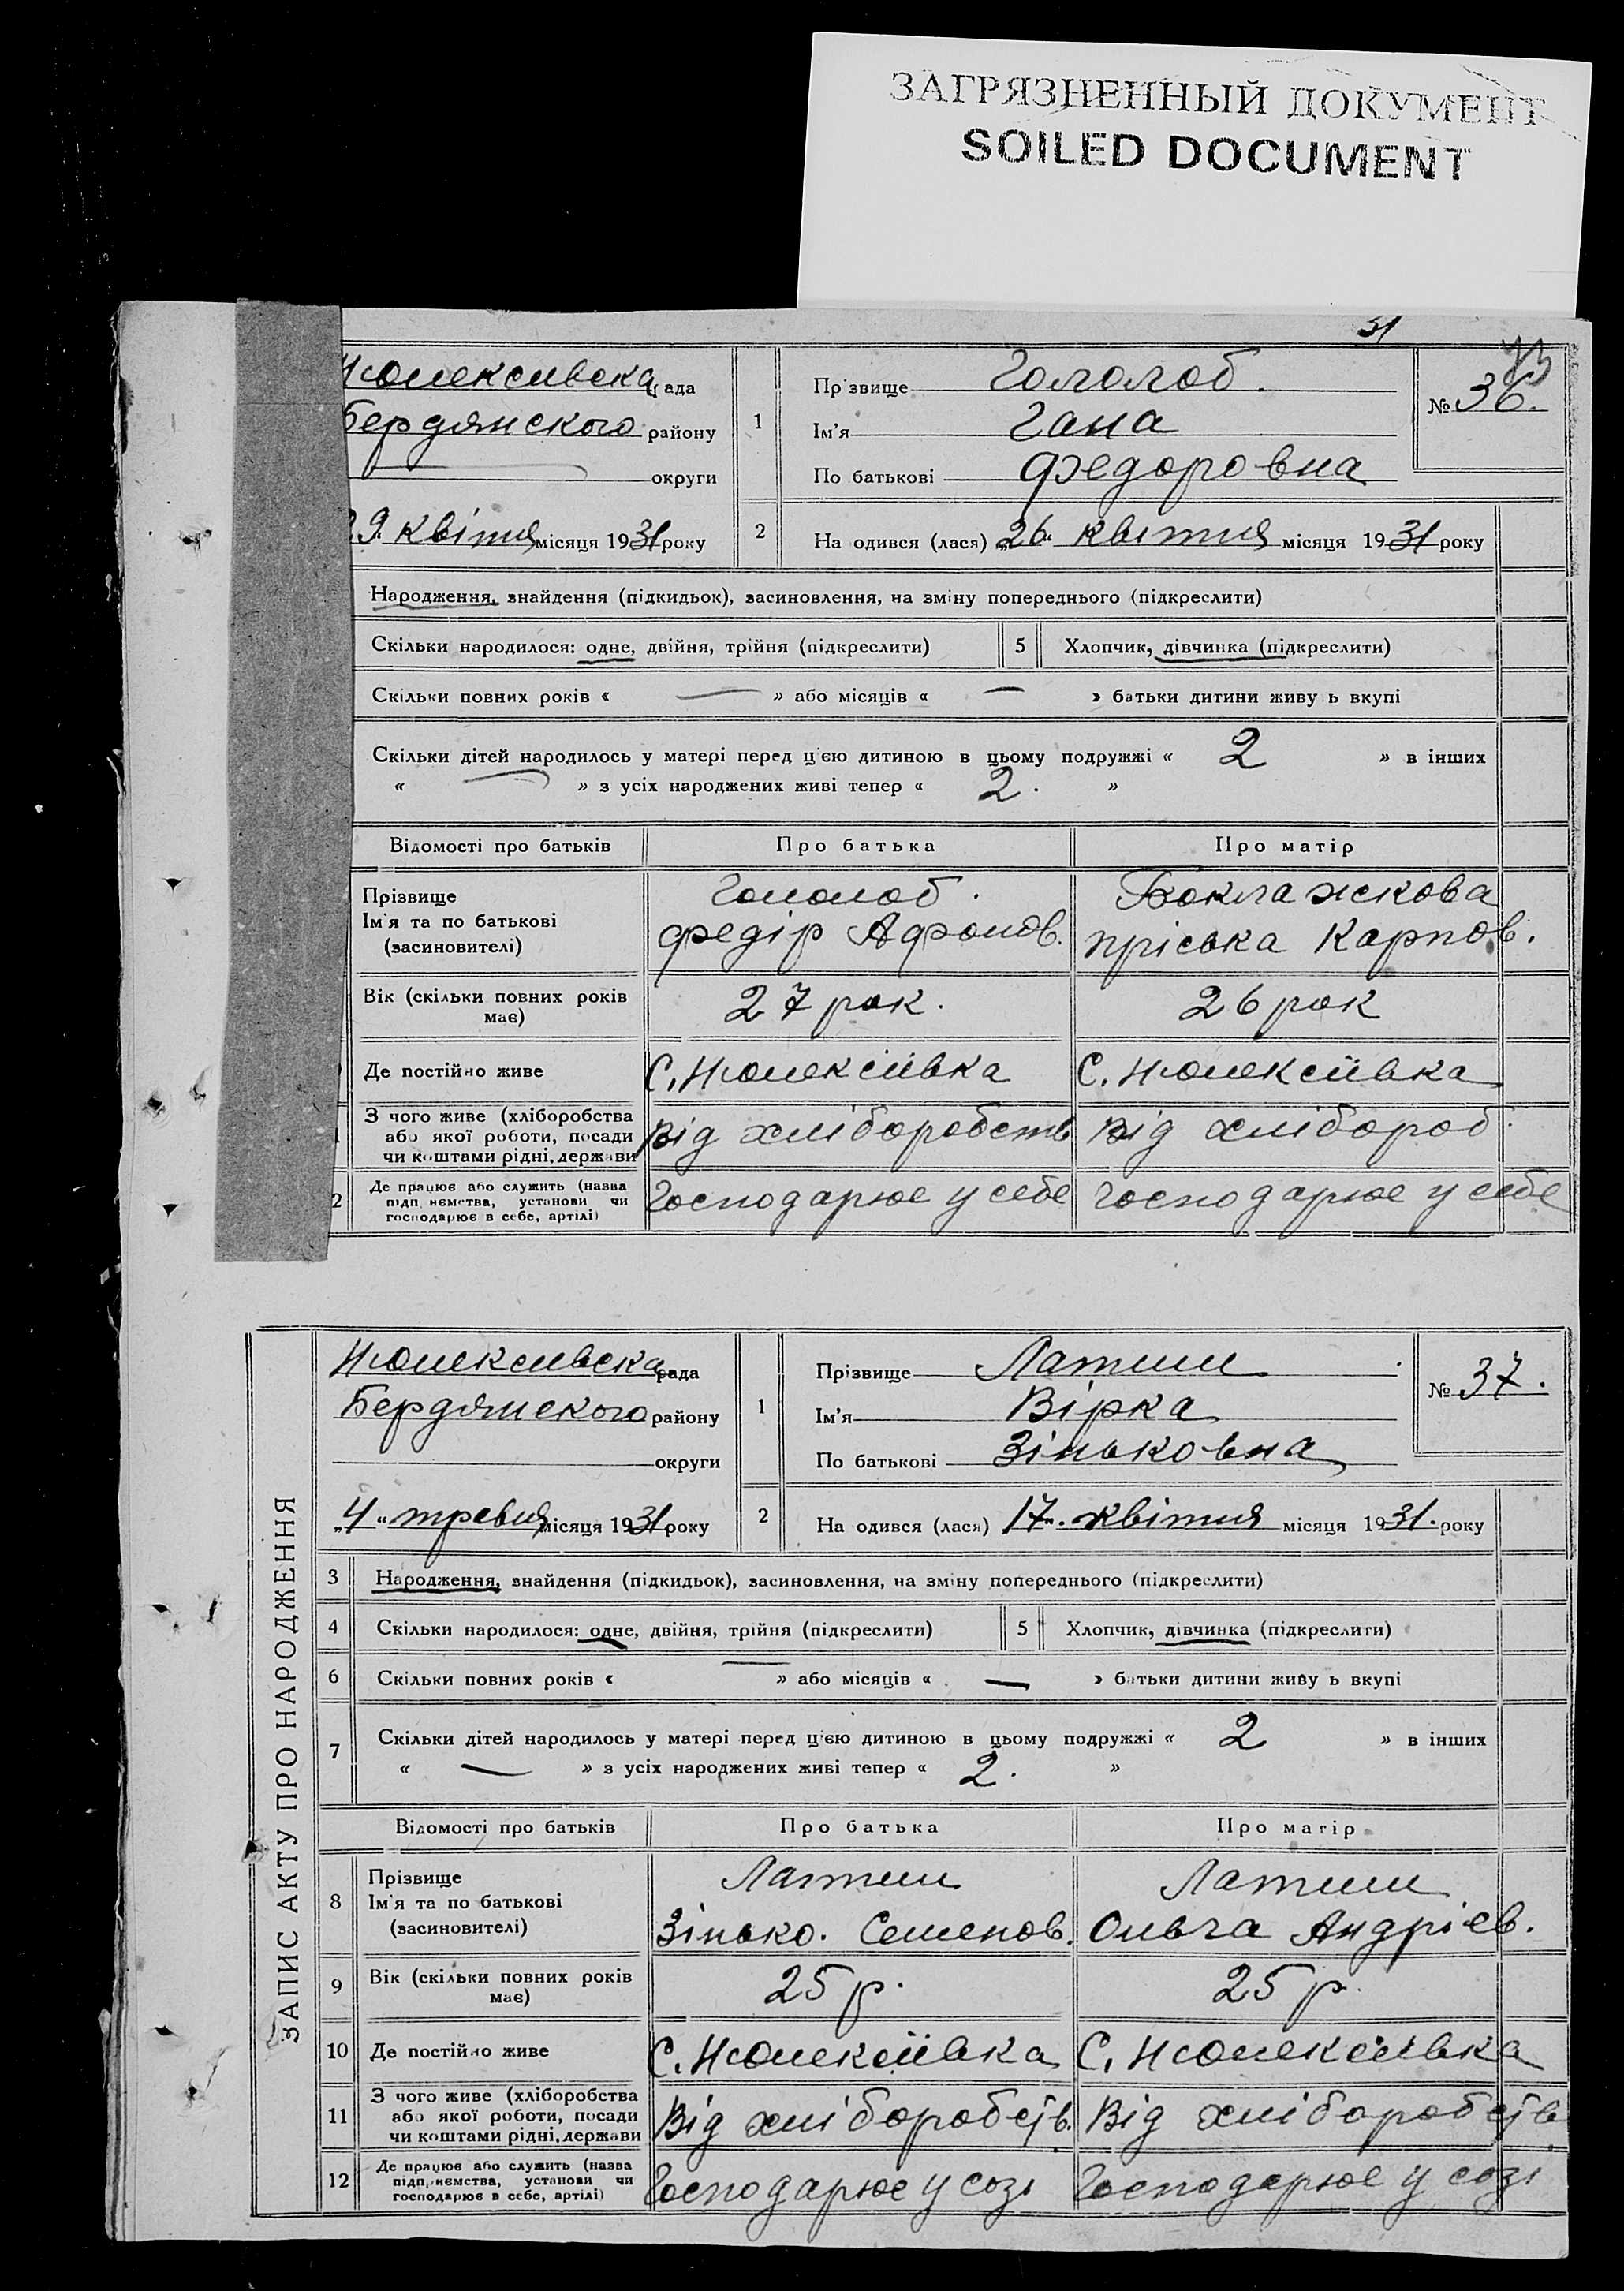 ЗАГРЯЗНЕННЫЙ ДОКУМЕНТ
SOILED DOCUMENT
31
рада
Бердянского району
округи
29. квітня місяця 1931 року
1
Прізвище Гололоб.
Ім'я Гана
По батькові Федоровна
№ 36.
2
На одився (лася) „26“ квітня місяця 1931 року
Народження, знайдення (підкидьок), засиновлення, на зміну попереднього (підкреслити)
Скільки народилося: одне, двійня, трійня (підкреслити) 5 Хлопчик, дівчинка (підкреслити)
Скільки повних років « — » або місяців « — » батьки дитини живу ь вкупі
Скільки дітей народилось у матері перед ц'єю дитиною в цьому подружжі « 2 » в інших
« — » з усіх народжених живі тепер « 2. »
Відомості про батьків Про батька Про матір
Прізвище Гололоб. Боклажскова
Ім'я та по батькові Федір Афонов. Пріська Карпов.
(засиновителі)
Вік (скільки повних років має) 27 рок. 26 рок
Де постійно живе
З чого живе (хліборобства або якої роботи, посади чи коштами рідні, держави Від хліборобств Від хлібороб.
Де працює або служить (назва підп иємства, установи чи господарює в себе, артілі) Господарює у себе Господарює у себе
ЗАПИС АКТУ ПРО НАРОДЖЕННЯ
рада
Бердянского району
округи
„4“ травня місяця 1931 року
1
Прізвище Латиш
Ім'я Вірка
По батькові Зіньковна
№ 37.
2
На одився (лася) 17. квітня місяця 1931. року
3 Народження, знайдення (підкидьок), засиновлення, на зміну попереднього (підкреслити)
4 Скільки народилося: одне, двійня, трійня (підкреслити) 5 Хлопчик, дівчинка (підкреслити)
6 Скільки повних років « — » або місяців « — » батьки дитини живу ь вкупі
7 Скільки дітей народилось у матері перед ц'єю дитиною в цьому подружжі « 2 » в інших
« — » з усіх народжених живі тепер « 2. »
Відомості про батьків Про батька Про матір
8 Прізвище Латиш Латиш
Ім'я та по батькові Зінько. Семенов. Ольга Андрієв.
(засиновителі)
9 Вік (скільки повних років має) 25 р. 25 р.
10 Де постійно живе
11 З чого живе (хліборобства або якої роботи, посади чи коштами рідні, держави Від хліборобств. Від хліборобств
12 Де працює або служить (назва підприємства, установи чи господарює в себе, артілі) Господарює у созі Господарює у созі